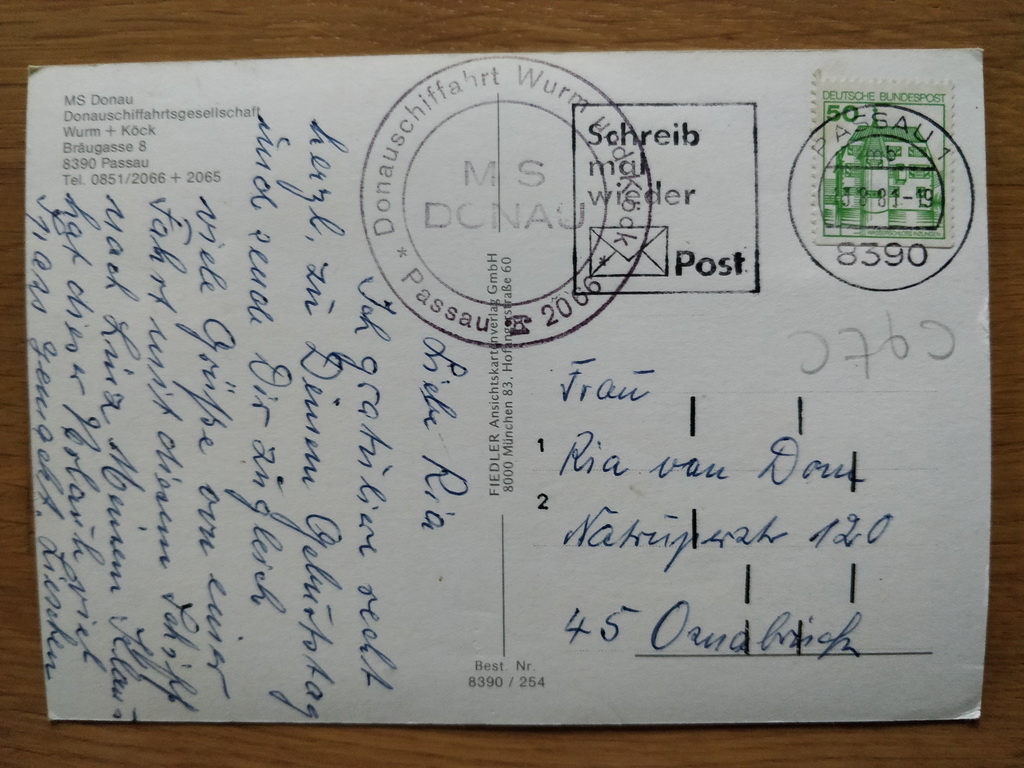 MS Donau
Donauschiffahrtsgesellschaft
Wurm + Köck
Bräugasse 8
8390 Passau
Tel. 0851/2066 + 2065
* Donauschiffahrt Wurm u. Köck * Passau ☎ 2066
MS
DONAU
Schreib
mal
wieder
Post
DEUTSCHE BUNDESPOST
50
PASSAU 1
8390
Liebe Ria
Ich gratuliere recht
herzl. zu Deinem Geburtstag
und sende Dir zugleich
viele Grüße von einer
Fahrt mit diesem Schiff
nach Linz. Meinem Klau-
hat dieser Urlaub viel
Spass gemacht.
FIEDLER Ansichtskartenverlag GmbH
8000 München 83. Hofangerstraße 60
Best. Nr.
8390 / 254
Frau
1
Ria van Dom
2
Natruperstr 120
45 Osnabrück